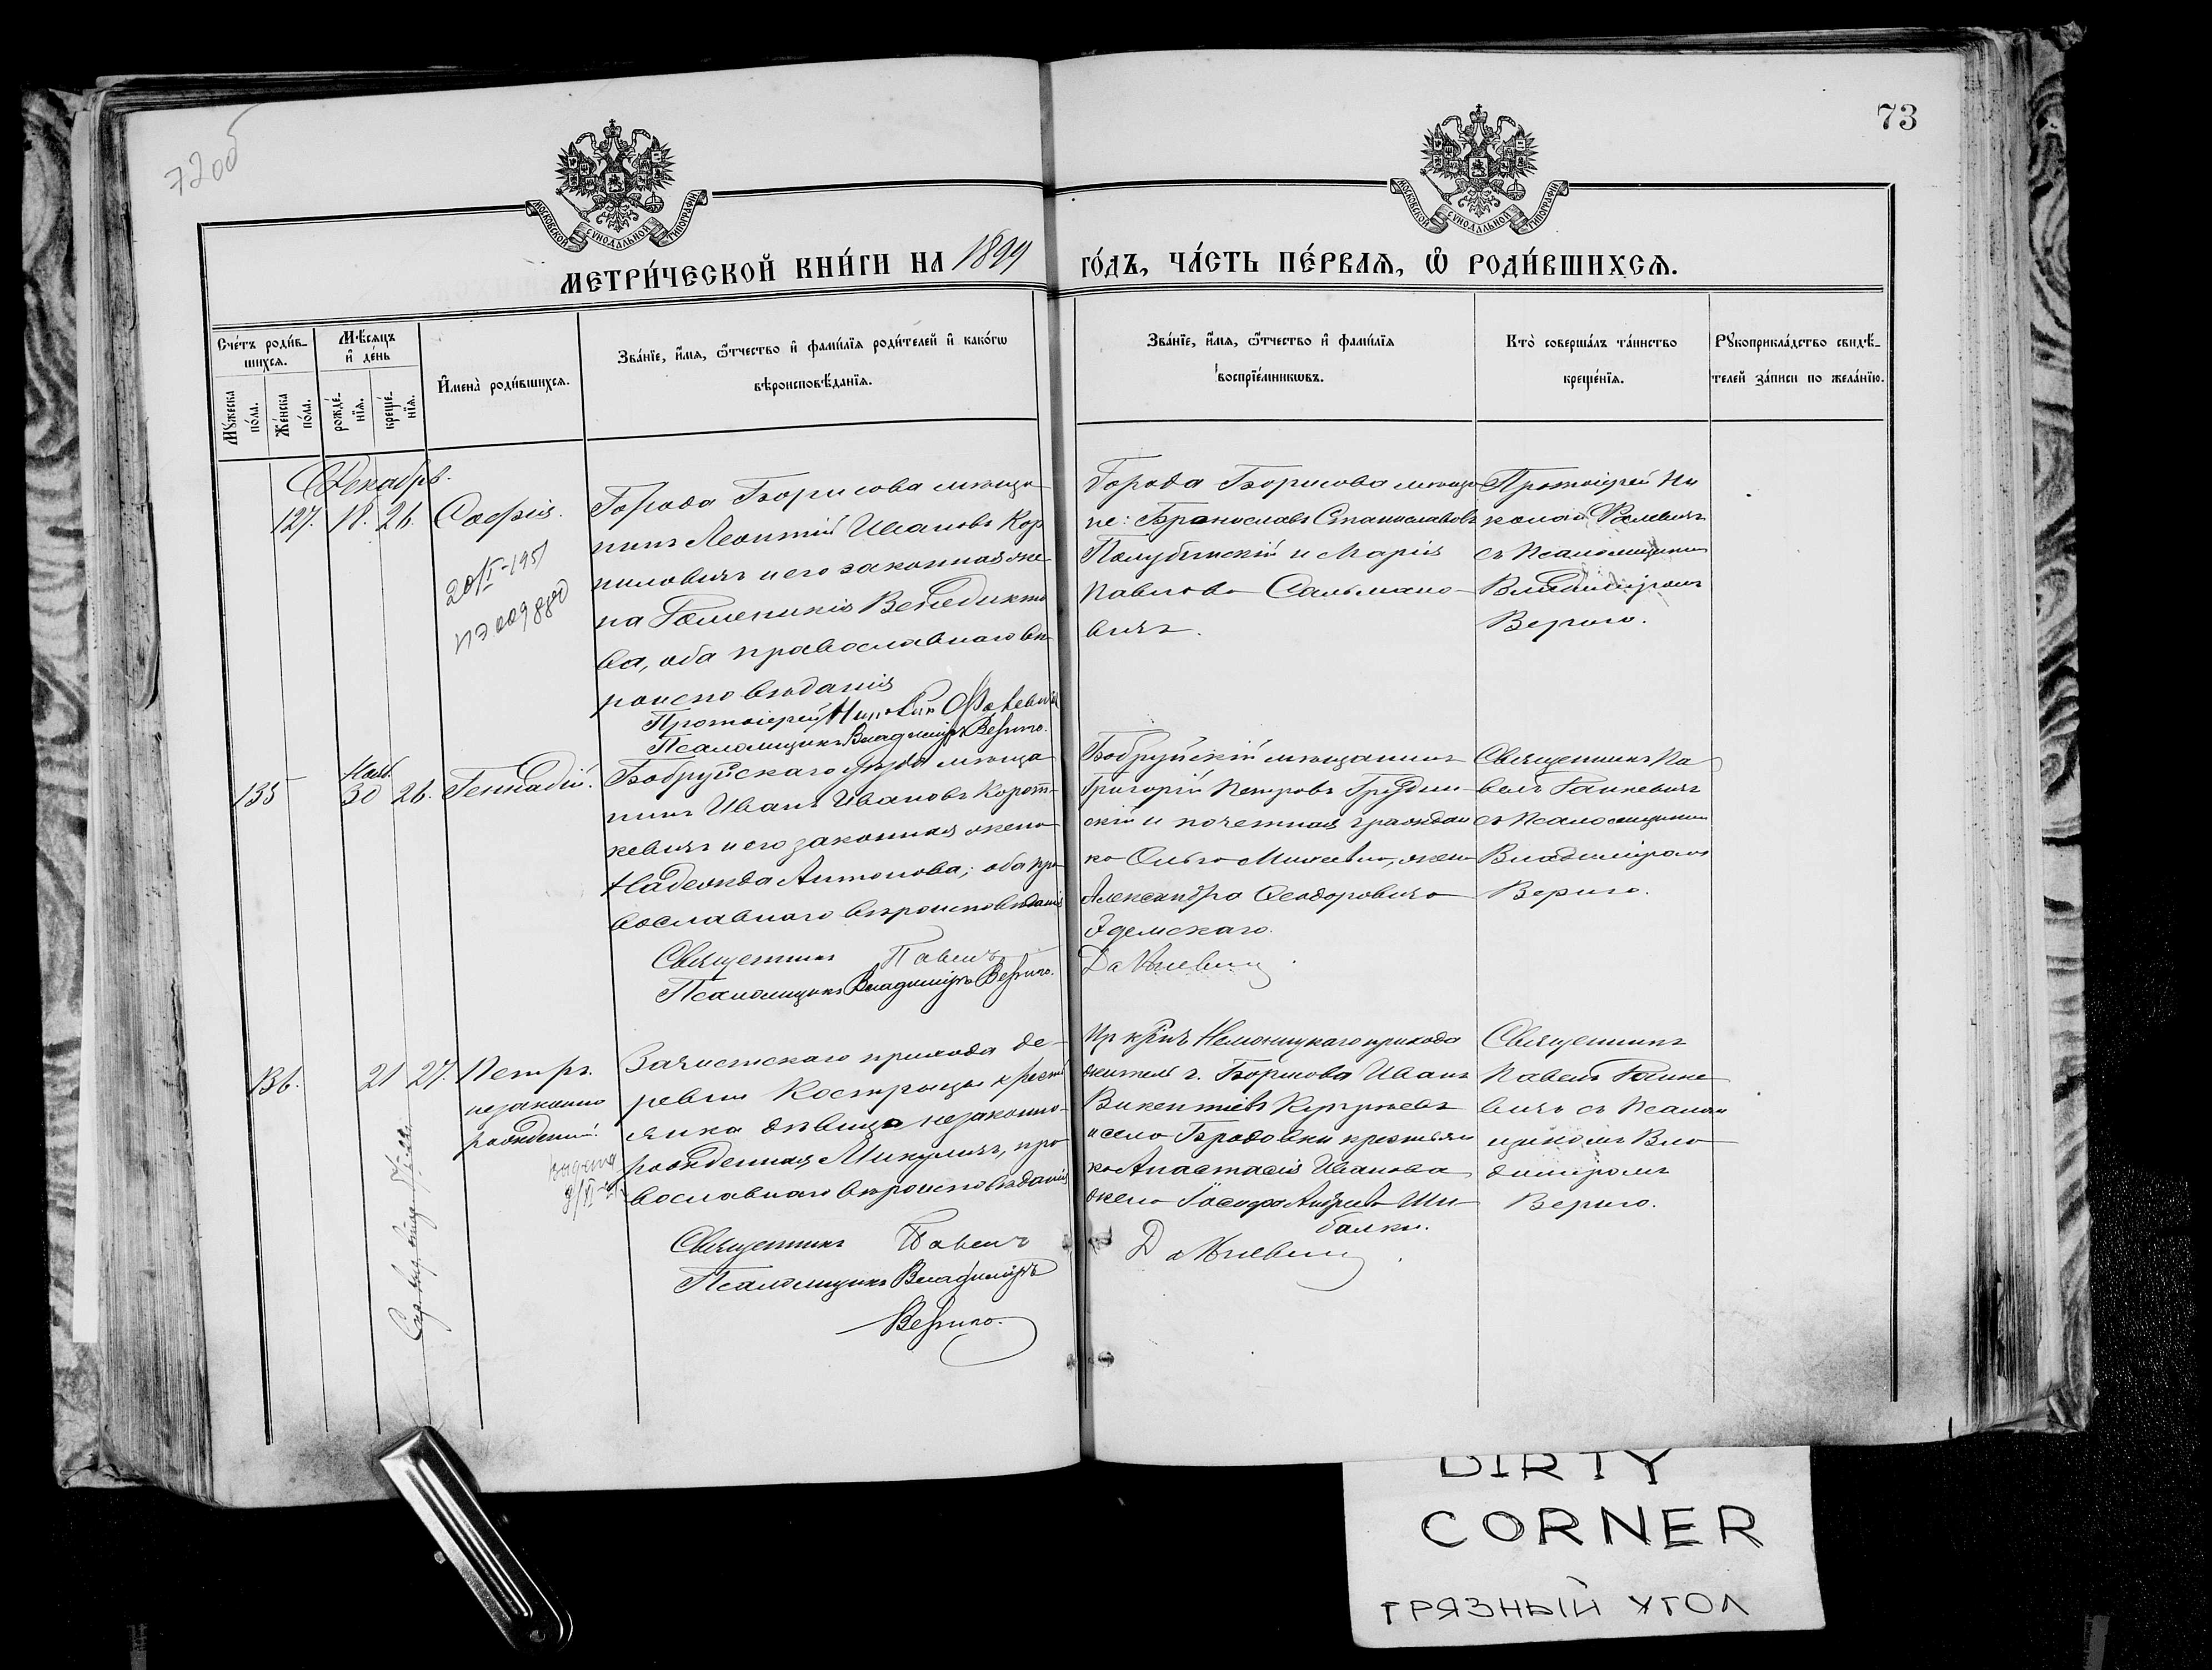 73
МОСКОВСКОЙ СУНОДАЛЬНОЙ ТИПОГРАФІИ
МОСКОВСКОЙ СУНОДАЛЬНОЙ ТИПОГРАФІИ
МЕТРИ́ЧЕСКОЙ КНИ́ГИ НА 1899 ГО́ДЪ, ЧА́СТЬ ПЕ́РВАЯ, Ѡ РОДИ́ВШИХСЯ.
Сче́тъ роди́в-
шихся.
Мꙋжеска
по́ла.
Же́нска
по́ла.
Мѣ́сяцъ
и де́нь
рожде́-
нїя.
креще́-
нїя.
Имена̀ роди́вшихся.
Зва́нїе, и́мя, ѻ҆́тчество и фами́лїя роди́телей и како́гѡ
вѣроисповѣ́данїя.
Зва́нїе, и́мя, ѻ҆́тчество и фами́лїя
воспрїе́мникѡвъ.
Кто̀ соверша́лъ та́инство
креще́нїя.
Рꙋкоприкла́дство свидѣ́-
телей за́писи по жела́нїю.
Декабрь.
127. 26. Софія.
Города Борисова мѣща-
нинъ Леонтій Ивановъ Кор
ниловичъ и его законная же-
на Венедикто
ва, оба православнаго вѣ-
роисповѣданія
Протоіерей
Псаломщикъ Владиміръ Верига.
Города Борисова мѣща
не: Брониславъ Станиславовъ
и Марія
Павлова Сальмано-
вичъ.
Протоіерей Ни
колай
съ Псаломщикомъ
Владиміромъ
Верига.
135 Нояб. 30 26. Геннадій.
Бобруйскаго уѣзда мѣща
нинъ Иванъ Ивановъ Корот-
кевичъ и его законная жена
Надежда Антонова; оба пра-
вославнаго вѣроисповѣданія
Священникъ Павелъ
Псаломщикъ Владиміръ Верига.
Бобруйскій мѣщанинъ
Григорій Петровъ
и почетная граждан
ка Ольга жена
Александра Ѳеодоровича
Эдемскаго.
Священникъ Па
велъ
съ Псаломщикомъ
Владиміромъ
Верига.
136. 21 27. Петръ.
незаконно
рожденный.
Зачистскаго прихода де-
ревни Кострицы крестья
янка дѣвица незаконно-
рожденная Микуличъ, пра
вославнаго вѣроисповѣданія
Священникъ Павелъ
Псаломщикъ Владиміръ
Верига.
прихода
житель г. Борисова Иванъ
Викентіевъ
и села Бродовки крестьян
ка Анастасія Иванова
жена Іосифа Андреева Ши-
балки.
Священникъ
Павелъ
вичъ съ Псалом
щикомъ Вла
диміромъ
Верига.
DIRTY
CORNER
ГРЯЗНЫЙ УГОЛ